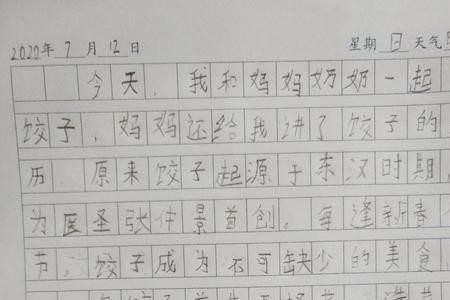 2020年7月12日 星期日天气
今天,我和妈妈奶奶一起
饺子,妈妈还给我讲了饺子的
历 原来饺子起源于东汉时期,
为医圣张仲景首创。每逢新春
节, 饺子成为不可缺少的美食